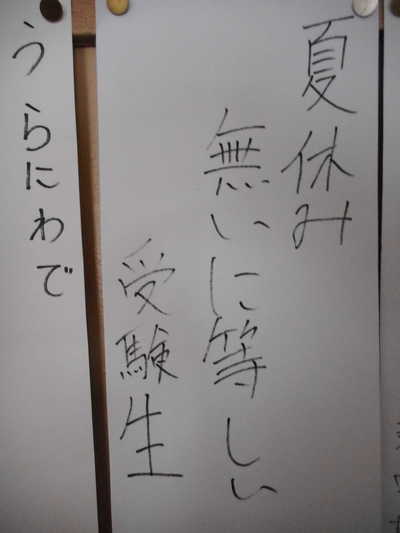 夏休み
無いに等しい
受験生
うらにわで